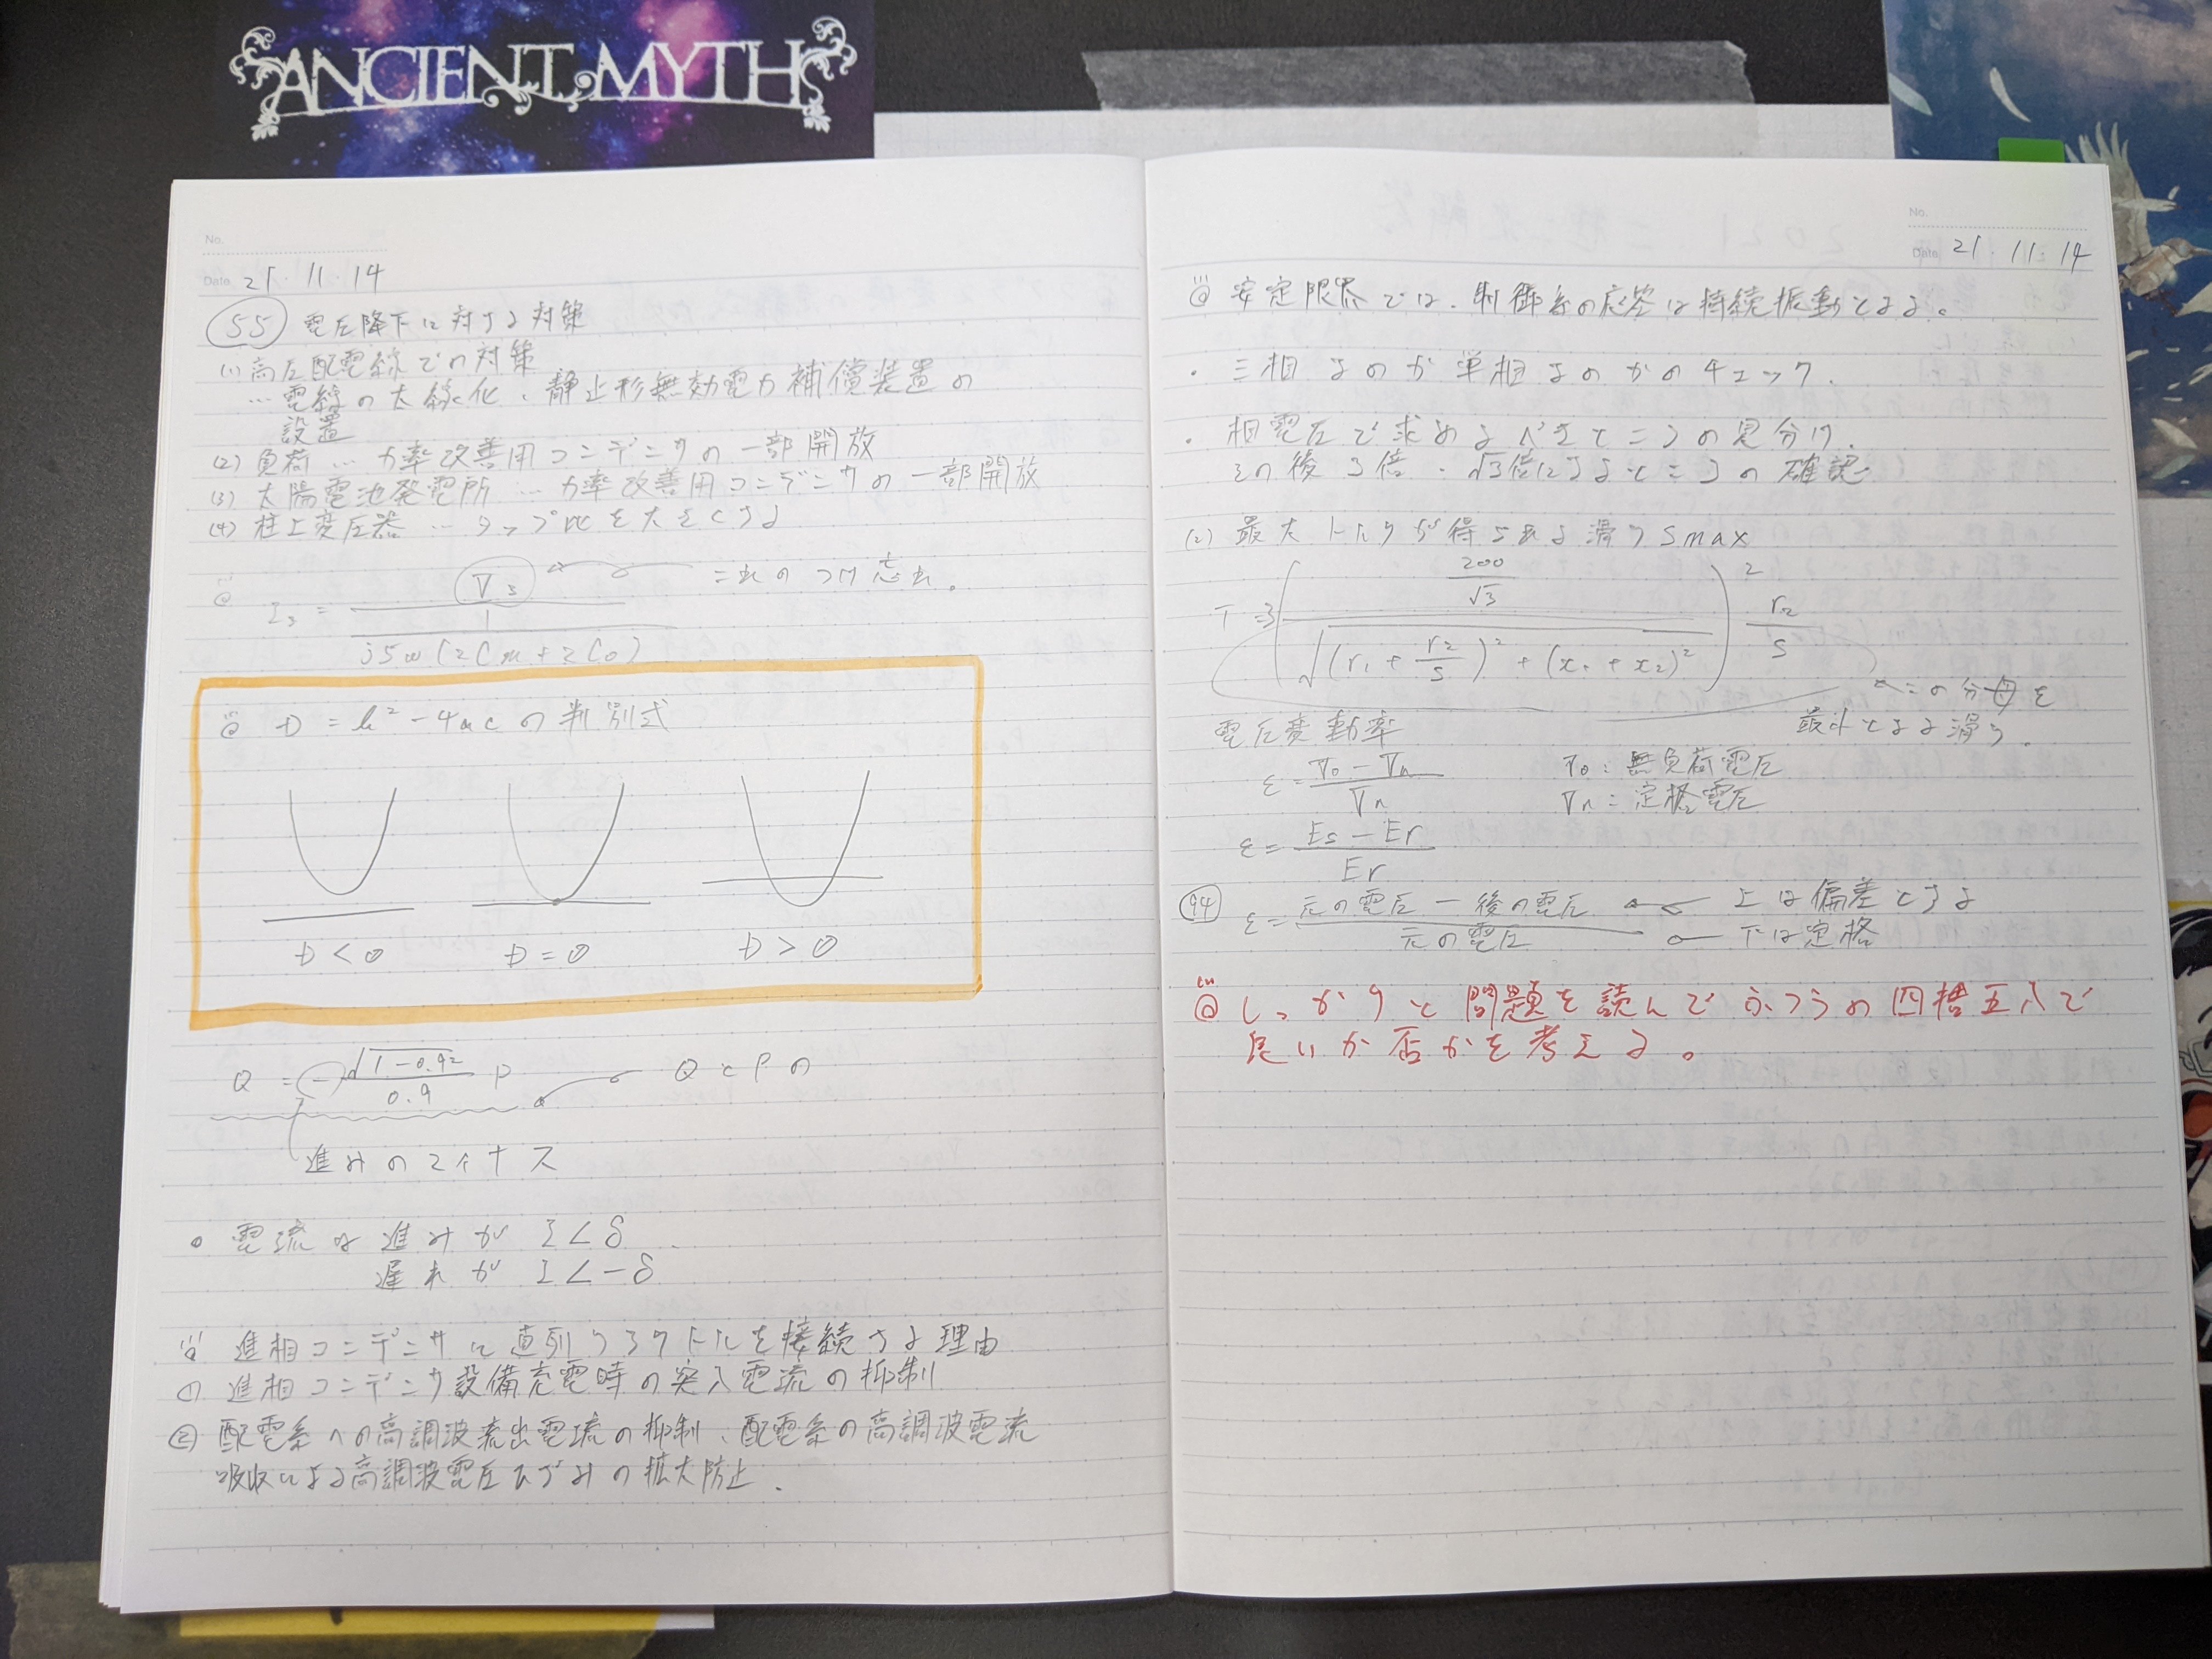 ANCIENT MYTH
No.
Date 21・11・14
55 電圧降下に対する対策
(1) 高圧配電線での対策
… 電線の太線化、静止形無効電力補償装置の
設置
(2) 負荷 … 力率改善用コンデンサの一部開放
(3) 太陽電池発電所 … 力率改善用コンデンサの一部開放
(4) 柱上変圧器 … タップ比を大きくする
I₃ = V₃ / (1 / j5ω(2Cm+2C0)) これのつけ忘れ。
D = b² - 4ac の判別式
D < 0 D = 0 D > 0
Q = - √(1-0.9²) / 0.9 P QとPの
進みのマイナス
・電流は進みが I∠δ
遅れが I∠-δ
進相コンデンサに直列リアクトルを接続する理由
① 進相コンデンサ設備充電時の突入電流の抑制
② 配電系への高調波流出電流の抑制、配電系の高調波電流
吸収による高調波電圧ひずみの拡大防止.
No.
Date 21・11・14
安定限界では、制御系の応答は持続振動となる。
・三相なのか単相なのかのチェック.
・相電圧で求めるべきところの見分け.
その後3倍・√3倍にするところの確認.
(2) 最大トルクが得られる滑り smax
T = 3 ( (200/√3) / √((r₁ + r₂/s)² + (x₁ + x₂)²) )² r₂/s
この分母を
最小となる滑り.
電圧変動率
ε = (V₀ - Vn) / Vn V₀ : 無負荷電圧
Vn : 定格電圧
ε = (Es - Er) / Er
94 ε = (元の電圧 - 後の電圧) / 元の電圧 上は偏差とする
下は定格
しっかりと問題を読んでふつうの四捨五入で
良いか否かを考える。